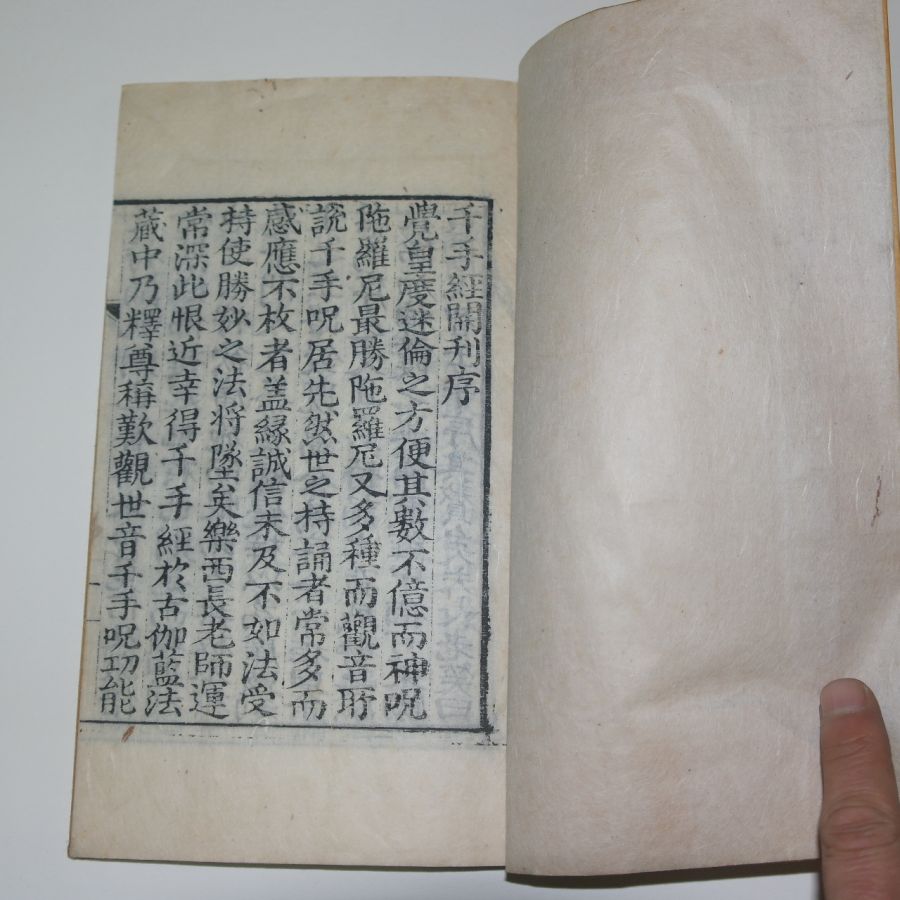 千手經開刋序
覺皇度迷倫之方便其數不億而神呪
陁羅尼最勝陁羅尼又多種而觀音所
說千手呪居先然世之持誦者常多而
感應不枚者盖緣誠信未及不如法受
持使勝妙之法将墜矣樂西長老師運
常深此恨近幸得千手經於古伽藍法
蔵中乃釋尊稱歎觀世音千手呪功能